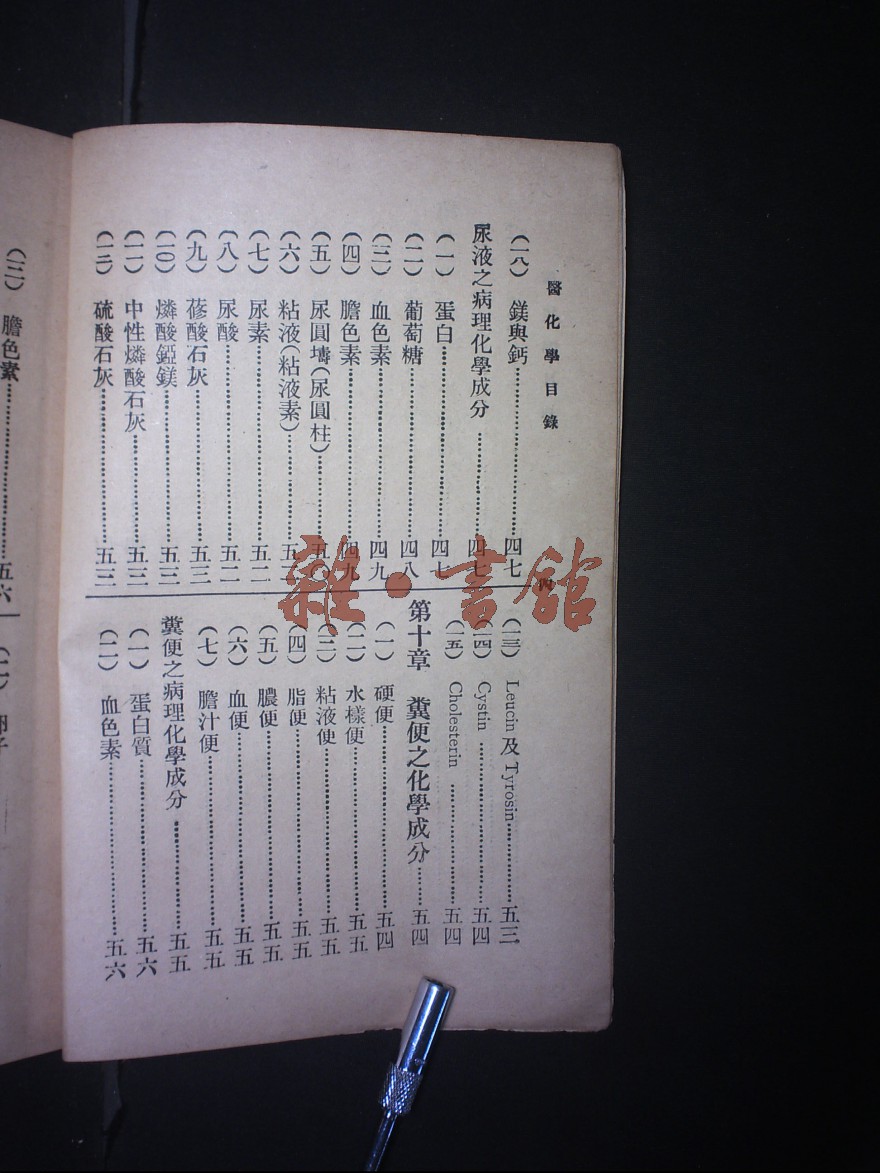 醫化學目錄
四
（一八） 鎂與鈣……四七
尿液之病理化學成分……四七
（一） 蛋白……四七
（二） 葡萄糖……四八
（三） 血色素……四九
（四） 膽色素……四九
（五） 尿圓壔（尿圓柱）……五〇
（六） 粘液（粘液素）……五一
（七） 尿素……五二
（八） 尿酸……五二
（九） 蓚酸石灰……五三
（一〇） 燐酸錏鎂……五三
（一一） 中性燐酸石灰……五三
（一二） 硫酸石灰……五三
（一三） Leucin 及 Tyrosin……五三
（一四） Cystin……五四
（一五） Cholesterin……五四
第十章 糞便之化學成分……五四
（一） 硬便……五四
（二） 水樣便……五五
（三） 粘液便……五五
（四） 脂便……五五
（五） 膿便……五五
（六） 血便……五五
（七） 膽汁便……五五
糞便之病理化學成分……五五
（一） 蛋白質……五六
（二） 血色素……五六
（三） 膽色素……五六
雜·書館